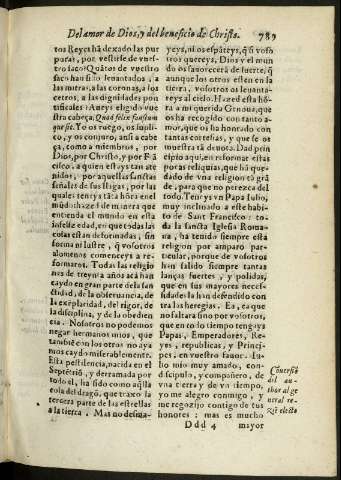 Del amor de Dios, y del beneficio de Christo. 789
tos Reyes há dexado las pur
puras, por vestirse de vues-
tro saco? Quātos de vuestro
saco han sido leuantados, a
las mitras, a las coronas, a los
cetros, a las dignidades pon
tificales? Aueys elegido vue
stra cabeça,
que sit. Yo os ruego, os impli-
co, y os conjuro, ansi a cabe
ça, como a miembros, por
Dios, por Christo, y por Frá
cisco, a quien estays tan ate
nidos, por aquellas sanctas
señales de sus llagas, por las
quales teneys tāta hōra en el
mūdo, haze se de manera que
entienda el mundo en esta
infelice edad, en que todas las
cosas estan deformadas, sin
forma ni lustre, q̄ vosotros
alomenos començeys a re-
formaros. Todas las religio
nes de treynta años acá han
caydo en gran parte de la san
ctidad, de la obseruancia, de
la exēplaridad, del rigor, de
la disciplina, y de la obedien
cia. Nosotros no podemos
negar hermanos mios, que
tambiē con los otros no aya
mos caydo miserablemente.
Esta pestilencia, nacida en el
Septētriō, y derramada por
todo el, ha sido como aq̄lla
cola del dragō, que traxo la
tercera parte de las estrellas
a la tierra. Mas no desma-
yeys, ni os espāteys, q̄ si voso
tros quereys, Dios y el mun
do os fauorecerá de suerte, q̄
aunque los otros esten en la
tierra, vosotros os leuanta-
reys al cielo. Hazed esta hō-
ra a mi querida Genoua, que
os ha recogido con tanto a-
mor, que os ha honrado con
tantas cortesias, y que se os
muestra tā deuota. Dad prin
cipio aqui, en reformar estas
pocas reliquias, que há que-
dado de vna religion tā grā
de, para que no perezca del
todo. Teneys vn Papa Iulio,
muy inclinado a este habi-
to de Sant Francisco: to-
da la sancta Iglesia Roma-
na, ha tenido siempre esta
religion por amparo par-
ticular, porque de vosotros
han salido siempre tantas
lanças fuertes, y polidas,
que en sus mayores necessi-
dades la han defendido con
tra las heregias. Ea, ea que
no faltara sino por vosotros,
que en todo tiempo tengays
Papas, Emperadores, Re-
yes, republicas, y Princi-
pes, en vuestro fauor. Iu-
lio mio muy amado, con-
discipulo, y compañero, de
vna tierra y de vn tiempo,
yo me alegro conmigo, y
me regozijo contigo de tus
honores: mas es mucho
del au-
thor al ge
neral re-
ziē electo
Ddd 4 mayor